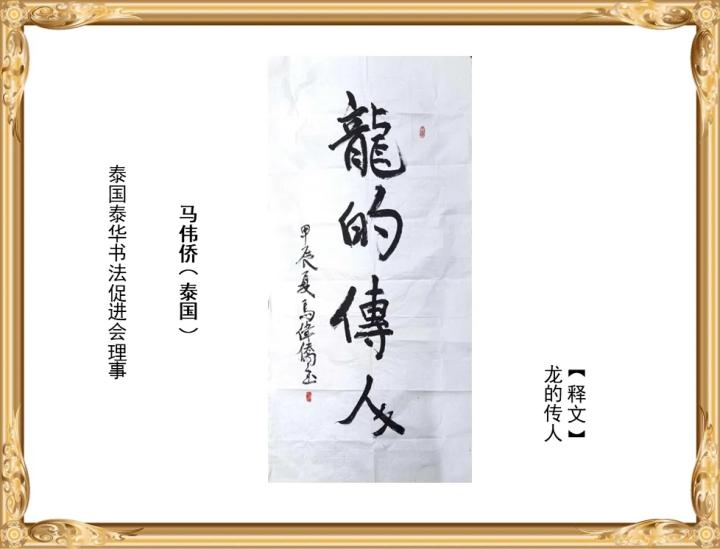 龍的傳人
甲辰夏馬偉僑書
【释文】
龙的传人
马伟侨（泰国）
泰国泰华书法促进会理事